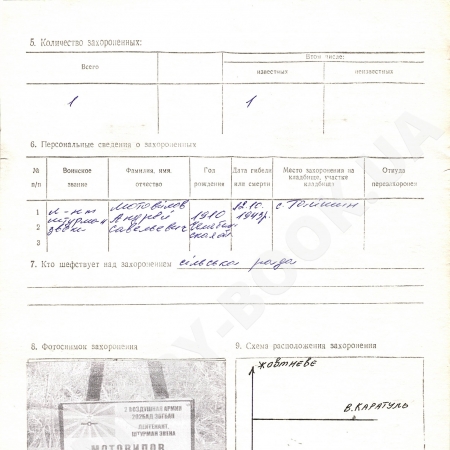 5. Количество захороненных:
Всего
В том числе:
известных
неизвестных
1
1
6. Персональные сведения о захороненных
№ п/п
Воинское звание
Фамилия, имя, отчество
Год рождения
Дата гибели или смерти
Место захоронения на кладбище, участке кладбища
Откуда перезахоронен
1
2
3
л-нт
штурман
звена
Мотовилов
Андрей
Савельевич
1910
12.10.
1943р.
7. Кто шефствует над захоронением сільська рада
8. Фотоснимок захоронения
9. Схема расположения захоронения
2 ВОЗДУШНАЯ АРМИЯ
ЛЕЙТЕНАНТ,
ШТУРМАН ЗВЕНА
МОТОВИЛОВ
ЖОВТНЕВЕ
В. КАРАТУЛЬ